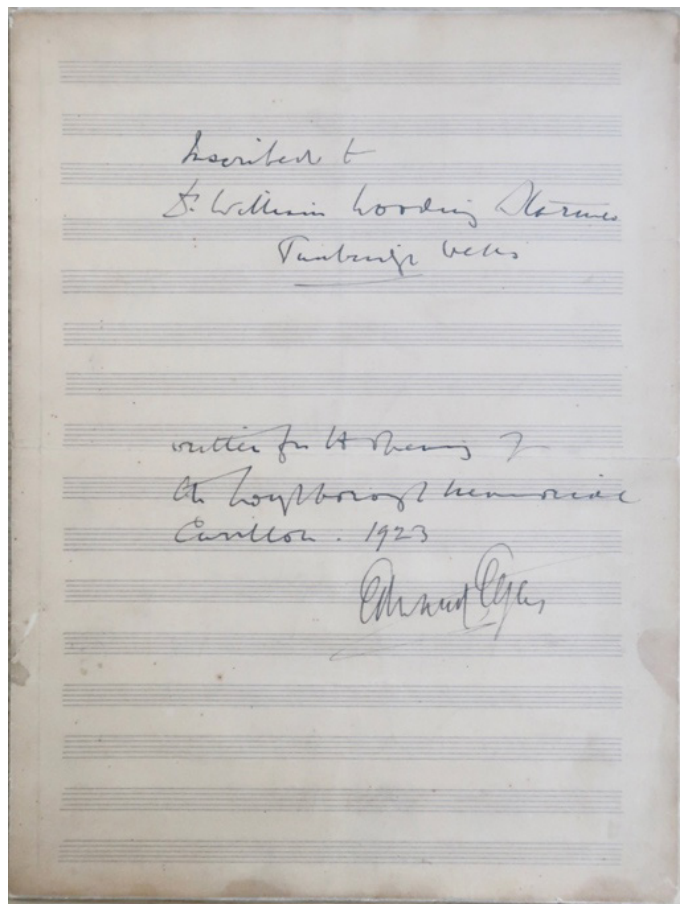 Inscribed to
Dr. William Wooding Starmer
Tunbridge Wells
written for the opening of
the Loughborough Memorial
Carillon. 1923
Edward Elgar